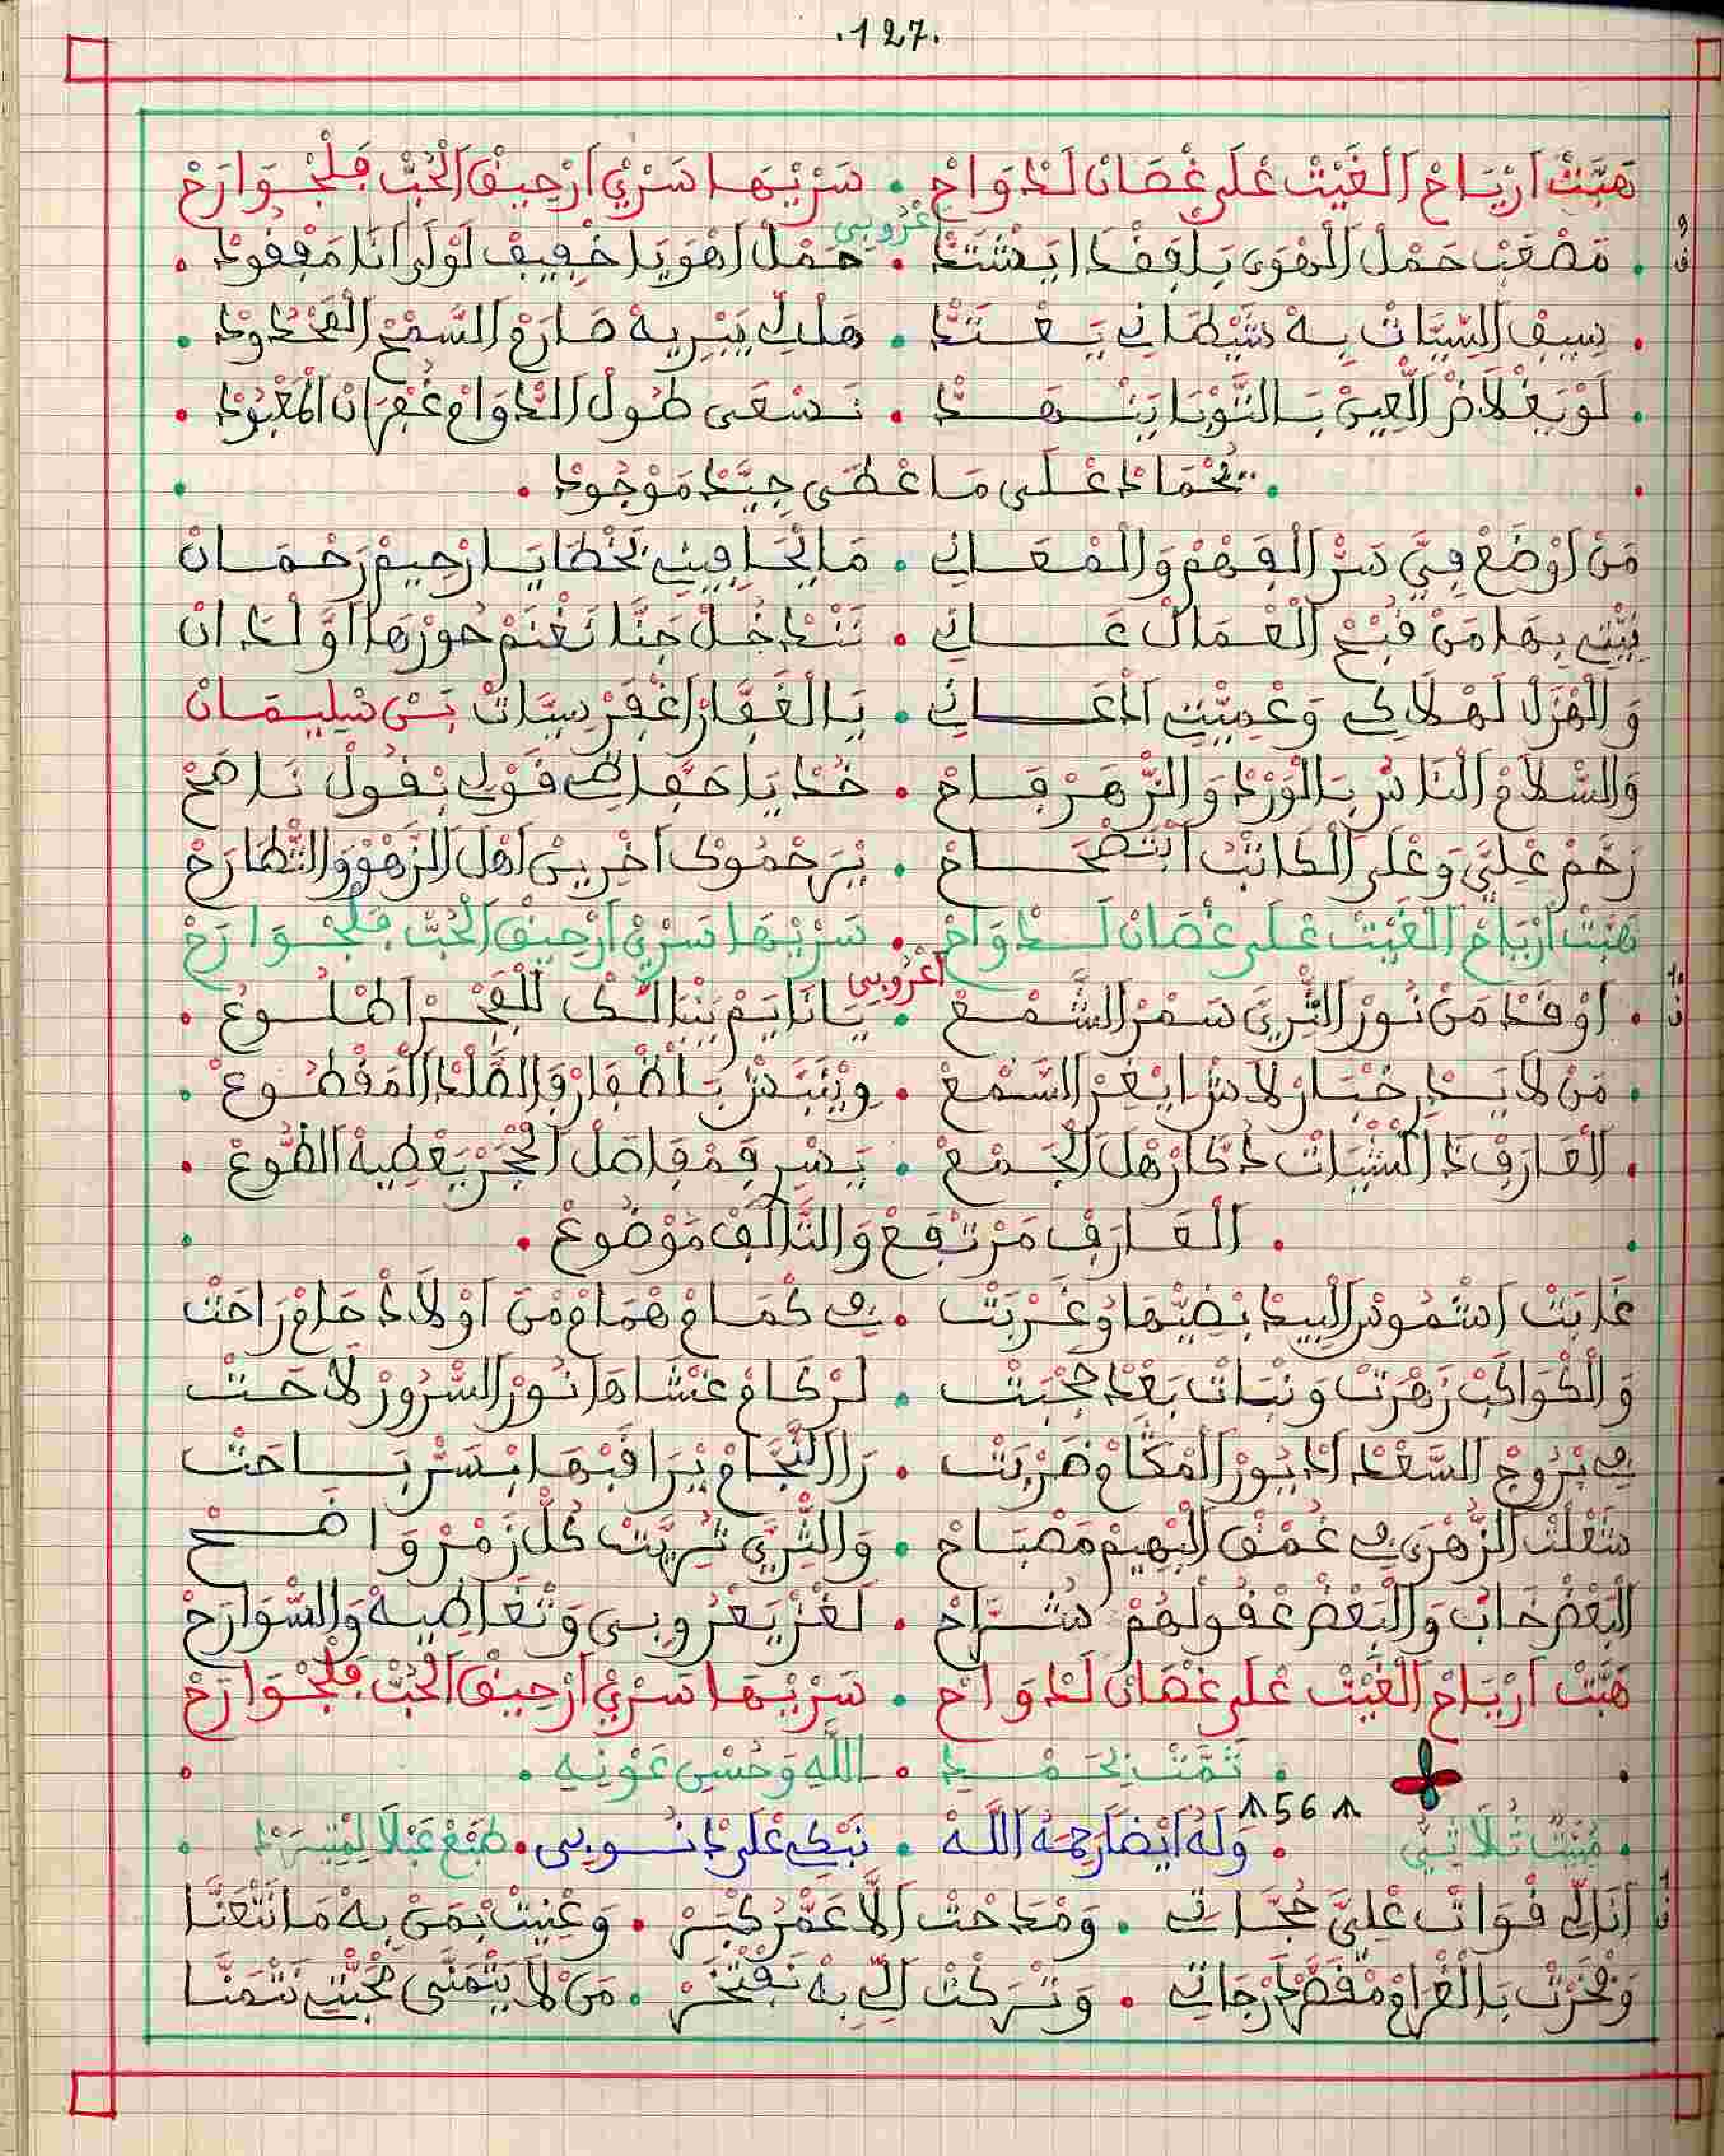 .127.
هَبَّتْ اَرْيَاحْ الْغَيْثْ عْلَى غْصَانْ لَدْوَاحْ . سَرْبْهَا سَرْيْ اَرْحِيقْ الْحُبّْ فَلْجْوَارَحْ
. مَصْعَبْ حَمْلْ الْهْوَى بَلْفَقْدْ اِيشْتَدّْ . اعْرُوبِي حَمْلْ اهْوَيَا خْفِيفْ لَوْلَى اَنَا مَفْقُودْ .
. سِيفْ السِّيَّاتْ بِهْ شَيْطَانِي يَعْتَدّْ . هَلْكِي يَبْرِيهْ صَارَمْ السَّمْحْ الْمَحْدُودْ .
. لَوْ يَغْلَاضْ الْعِيبْ بَالتَّوْبَا يَنْهَدّْ . نَسْعَى طُولْ الدّْوَامْ غُفْرَانْ الْمَعْبُودْ .
. نَحْمَادْ عْلَى مَا عْطَى جِيَّدْ مَوْجُودْ .
مَنْ اَوْضَعْ فِيَّ سَرّْ الْفْهَمْ وَالْمْعَانِي . مَا يْجَافِينِي بَخْطَايَا رْحِيمْ رَحْمَانْ
بِيَّتِي بِهَا مَنْ قُبْحْ الْعْمَالْ عَانِي . نَنْدْخُلْ جَنَّا نَغْنَمْ حُورْهَا اَوَّلْدَانْ
وَالْهْزَلْ لَهْلَاكِي وَعْمِيَّتِي اَدْعَانِي . يَا الْغَفَّارْ اغْفَرْ سِيَّاتْ بَنْ سْلِيمَانْ
وَالسّْلَامْ النَّاسْ بَالْوَرْدْ وَالزّْهَرْ فَاحْ . خُدْ يَا حَفَّاظِي قَوْلِي بْقُولْ نَاصَحْ
رَحَّمْ عْلِيَّ وَعْلَى الْكَاتَبْ اَنْتَصْحَاحْ . يْرَحْمُوكْ اَخْرِينْ اَهْلْ الزَّهْوْ وَالتّْطَارَحْ
هَبَّتْ اَرْيَاحْ الْغَيْثْ عْلَى غْصَانْ لَدْوَاحْ . سَرْبْهَا سَرْيْ اَرْحِيقْ الْحُبّْ فَلْجْوَارَحْ
. اَوْقَدْ مَنْ نُورْ التّْرِيَّ سَمْرْ الشَّمْعْ . اعْرُوبِي يَا نَايَمْ بَنْبَالَكْ لَلْفْجَرْ اطْلُوعْ .
. مَنْ لَا يَدْرِ خْبَارْ لَاشْ ايْغَرّْ السَّمْعْ . وِيْنَبَّشْ بَلْظْفَارْ وَالصَّلْدْ الْمَقْطُوعْ .
. الْعَارَفْ دْ الشِّيَّاتْ دْكَارْ هَلْ الْجَمْعْ . يَسْرِ فَمْفَاصَلْ الْحْجَرْ يَعْطِيهْ الطُّوعْ .
. الْعَارَفْ مَرْتْفَعْ وَالتَّالَفْ مَوْضُوعْ .
غَابَتْ اشْمُوسْ الْبِيدْ بْضِيَّهَا وْغَرْبَتْ . فِي كْمَامْ هْمَامْ مْنَ اَوْلَادْ حَامْ رَاحَتْ
وَالْكْوَاكَبْ زَهْرَتْ وَنْبَاتْ بَعْدْ حُجْبَتْ . لَرْكَامْ غْشَاهَا نُورْ السّْرُورْ لَاحَتْ
فِي بْرُوجْ السَّعْدْ اَدْيُورْ الْمْكَامْ ضَرْبَتْ . رَا النّْجَامْ يْرَاقَبْهَا بْسَرّْ بَاحَتْ
شَعْلَتْ الزُّهْرَى فِي غُمْقْ الْبْهِيمْ مَصْبَاحْ . وَالتّْرِيَّ تْرِيَّتْ كُلّْ زَمْرْ وَاضَحْ
الْبَعْضْ خَابْ وَالْبَعْضْ عْقُولْهُمْ شْرَاحْ . لَغْزْ يَعْرُوبِي وَتْغَاطِيهْ وَالسّْوَارَحْ
هَبَّتْ اَرْيَاحْ الْغَيْثْ عْلَى غْصَانْ لَدْوَاحْ . سَرْبْهَا سَرْيْ اَرْحِيقْ الْحُبّْ فَلْجْوَارَحْ
. تَمَّتْ بْحَمْدِ . اللَّهِ وَحُسْنِ عَوْنِهِ .
56
. مْبَيَّتْ ثُلَاثِي . وَلَهُ اَيْضًا رَحِمَهُ اللَّهْ . نَبْكِي عْلَى دْنُوبِي . طَبْعْ عْبَلَا لِمْتِيرَدْ .
اَنَا لِّي فْوَاتْ عْلِيَّ حُجَّاتِي . وَمْدَاحْتْ اِلَّا عَمَّرْ كْبَرْ . وَعْنِيتْ بْمَنْ بِهْ مَا نْتْعَنَّا
وَفْخَرْتْ بَالْغْرَامْ مْقَصَّدْ رْجَاتِي . وَتْرَكْتْ لِّي بِهْ نَفْتْخَرْ . مَنْ لَا يَتْمَنَّى مْحَبّْتِي نَتْمَنَّا